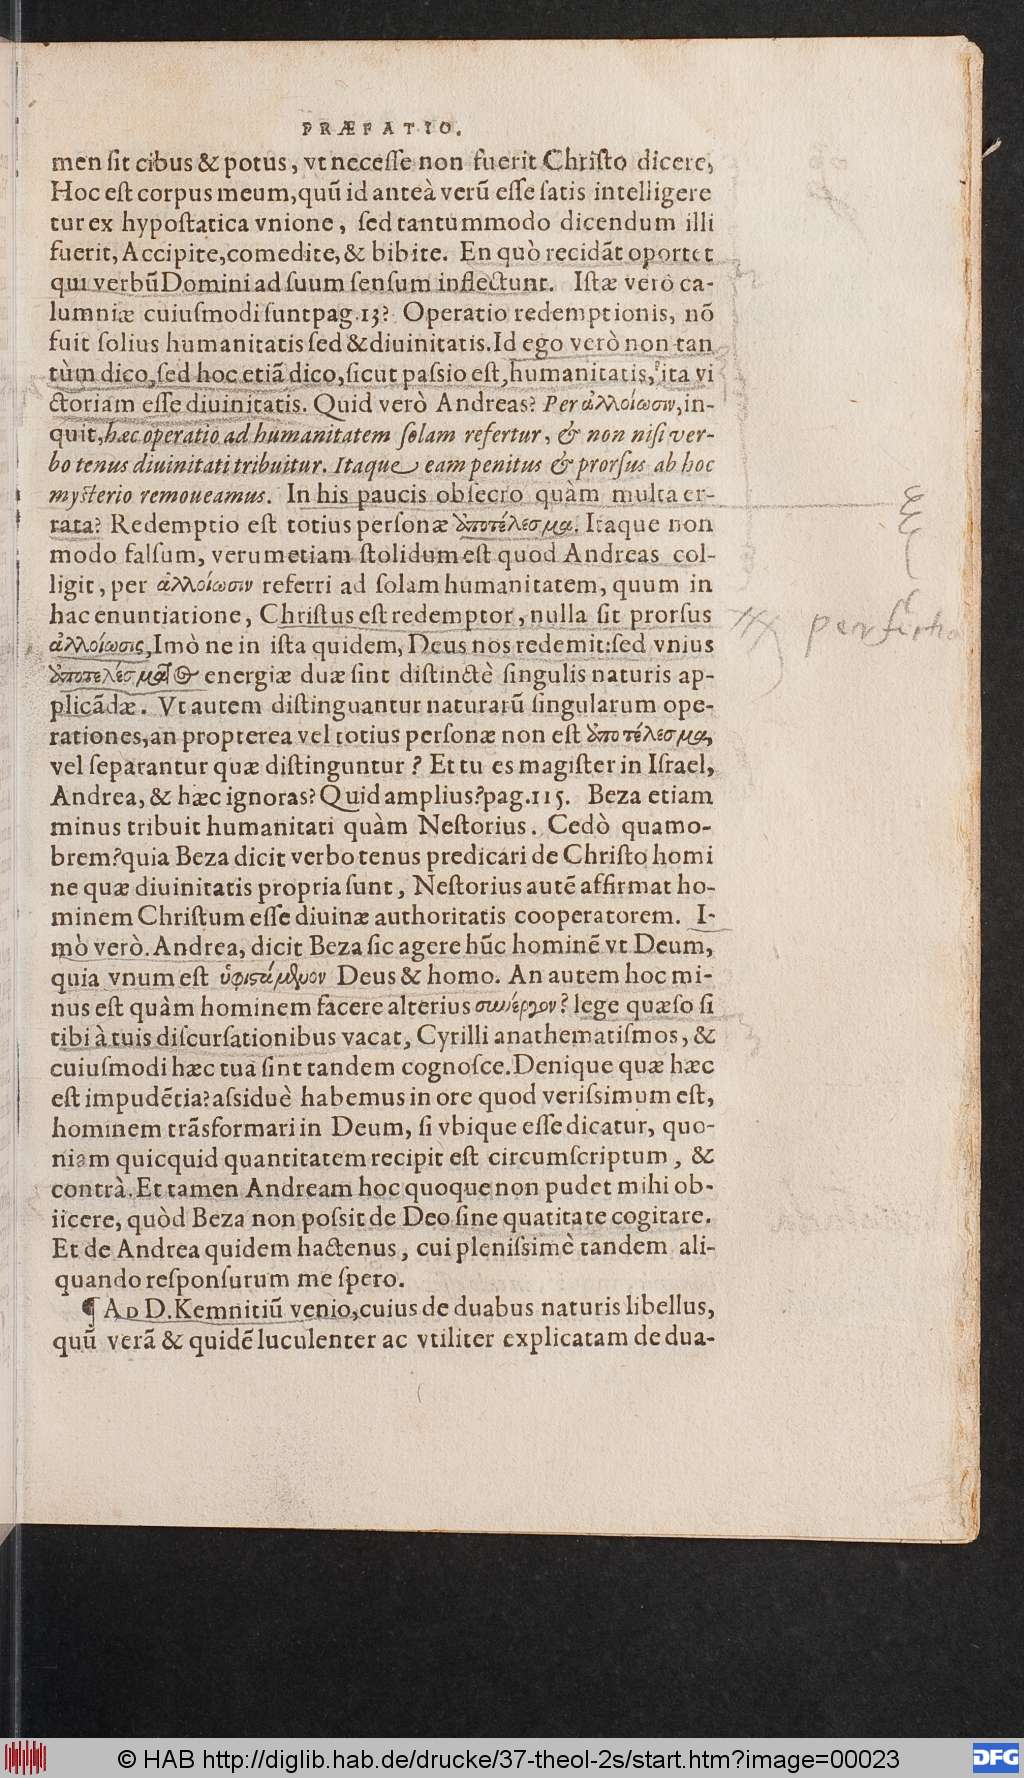 PRÆFATIO.
men ſit cibus & potus, vt neceſſe non fuerit Chriſto dicere,
Hoc eſt corpus meum, quũ id anteà verũ eſſe ſatis intelligere
tur ex hypoſtatica vnione, ſed tantummodo dicendum illi
fuerit, Accipite, comedite, & bibite. En quò recidãt oportet
qui verbũ Domini ad ſuum ſenſum inflectunt. Iſtæ verò ca-
lumniæ cuiuſmodi ſunt pag. 13? Operatio redemptionis, nõ
fuit ſolius humanitatis ſed & diuinitatis. Id ego verò non tan
tùm dico, ſed hoc etiã dico, ſicut paſsio eſt, humanitatis, ita vi
ctoriam eſſe diuinitatis. Quid verò Andreas? Per ἀλλοίωσιν, in-
quit, hæc operatio ad humanitatem ſolam refertur, & non niſi ver-
bo tenus diuinitati tribuitur. Itaque eam penitus & prorſus ab hoc
myſterio remoueamus. In his paucis obſecro quàm multa er-
rata? Redemptio eſt totius perſonæ ἀποτέλεσμα. Itaque non
modo falſum, verumetiam ſtolidum eſt quod Andreas col-
ligit, per ἀλλοίωσιν referri ad ſolam humanitatem, quum in
hac enuntiatione, Chriſtus eſt redemptor, nulla ſit prorſus
ἀλλοίωσις, Imò ne in iſta quidem, Deus nos redemit: ſed vnius
ἀποτελέσματος energiæ duæ ſint diſtinctè ſingulis naturis ap-
plicãdæ. Vt autem diſtinguantur naturarũ ſingularum ope-
rationes, an propterea vel totius perſonæ non eſt ἀποτέλεσμα,
vel ſeparantur quæ diſtinguntur? Et tu es magiſter in Iſrael,
Andrea, & hæc ignoras? Quid amplius? pag. 115. Beza etiam
minus tribuit humanitati quàm Neſtorius. Cedò quamo-
brem? quia Beza dicit verbo tenus predicari de Chriſto homi
ne quæ diuinitatis propria ſunt, Neſtorius autẽ affirmat ho-
minem Chriſtum eſſe diuinæ authoritatis cooperatorem. I-
mò verò. Andrea, dicit Beza ſic agere hũc hominẽ vt Deum,
quia vnum eſt ὑφιστάμενον Deus & homo. An autem hoc mi-
nus eſt quàm hominem facere alterius συνεργὸν? lege quæſo ſi
tibi à tuis diſcurſationibus vacat, Cyrilli anathematiſmos, &
cuiuſmodi hæc tua ſint tandem cognoſce. Denique quæ hæc
eſt impudẽtia? aſsiduè habemus in ore quod veriſsimum eſt,
hominem trãsformari in Deum, ſi vbique eſſe dicatur, quo-
niam quicquid quantitatem recipit eſt circumſcriptum, &
contrà. Et tamen Andream hoc quoque non pudet mihi ob-
iicere, quòd Beza non poſsit de Deo ſine quatitate cogitare.
Et de Andrea quidem hactenus, cui pleniſsimè tandem ali-
quando reſponſurum me ſpero.
¶ AD D. Kemnitiũ venio, cuius de duabus naturis libellus,
quũ verã & quidẽ luculenter ac vtiliter explicatam de dua-
© HAB http://diglib.hab.de/drucke/37-theol-2s/start.htm?image=00023
DFG